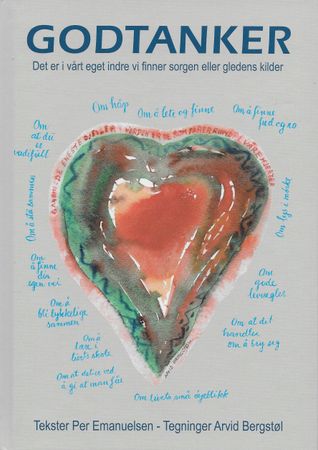 GODTANKER
Det er i vårt eget indre vi finner sorgen eller gledens kilder
Om håp
Om å lete og finne
Om å finne
fred og ro
Om
at du
er
verdifull
Om lys i mørke
Om å stå sammen
Om å finne
din
egen vei
Om
gode
leveregler
Om å
bli lykkelige
sammen
Om at det
handler
om å bry seg
Om å
lære i
livets skole
Om at det er ved
å gi at man får
Om livets små øyeblikk
DE ENESTE DJEVLER I VERDEN ER DE SOM FARER RUNDT I VÅRE HJERTER
Tekster Per Emanuelsen - Tegninger Arvid Bergstøl